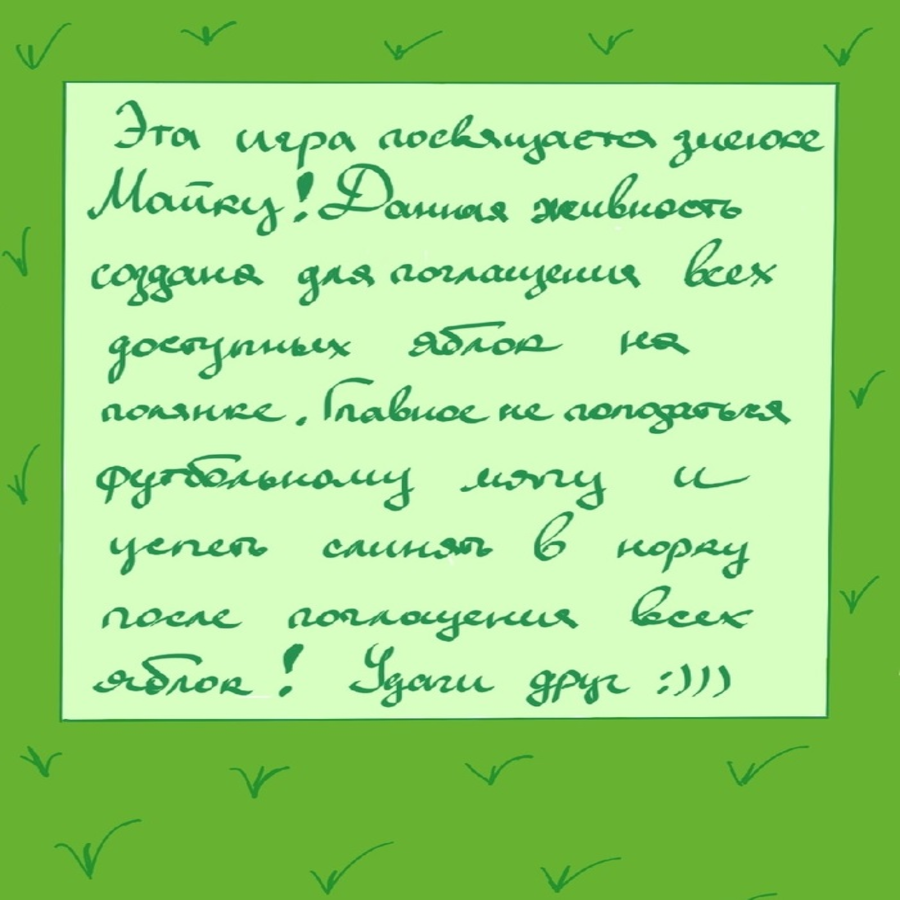 Эта игра посвящается змеюке
Майку! Данная живность
создана для поглащения всех
доступных яблок на
полянке. Главное не поподаться
футбольному мячу и
успеть слинять в норку
после поглащения всех
яблок! Удачи друг :)))